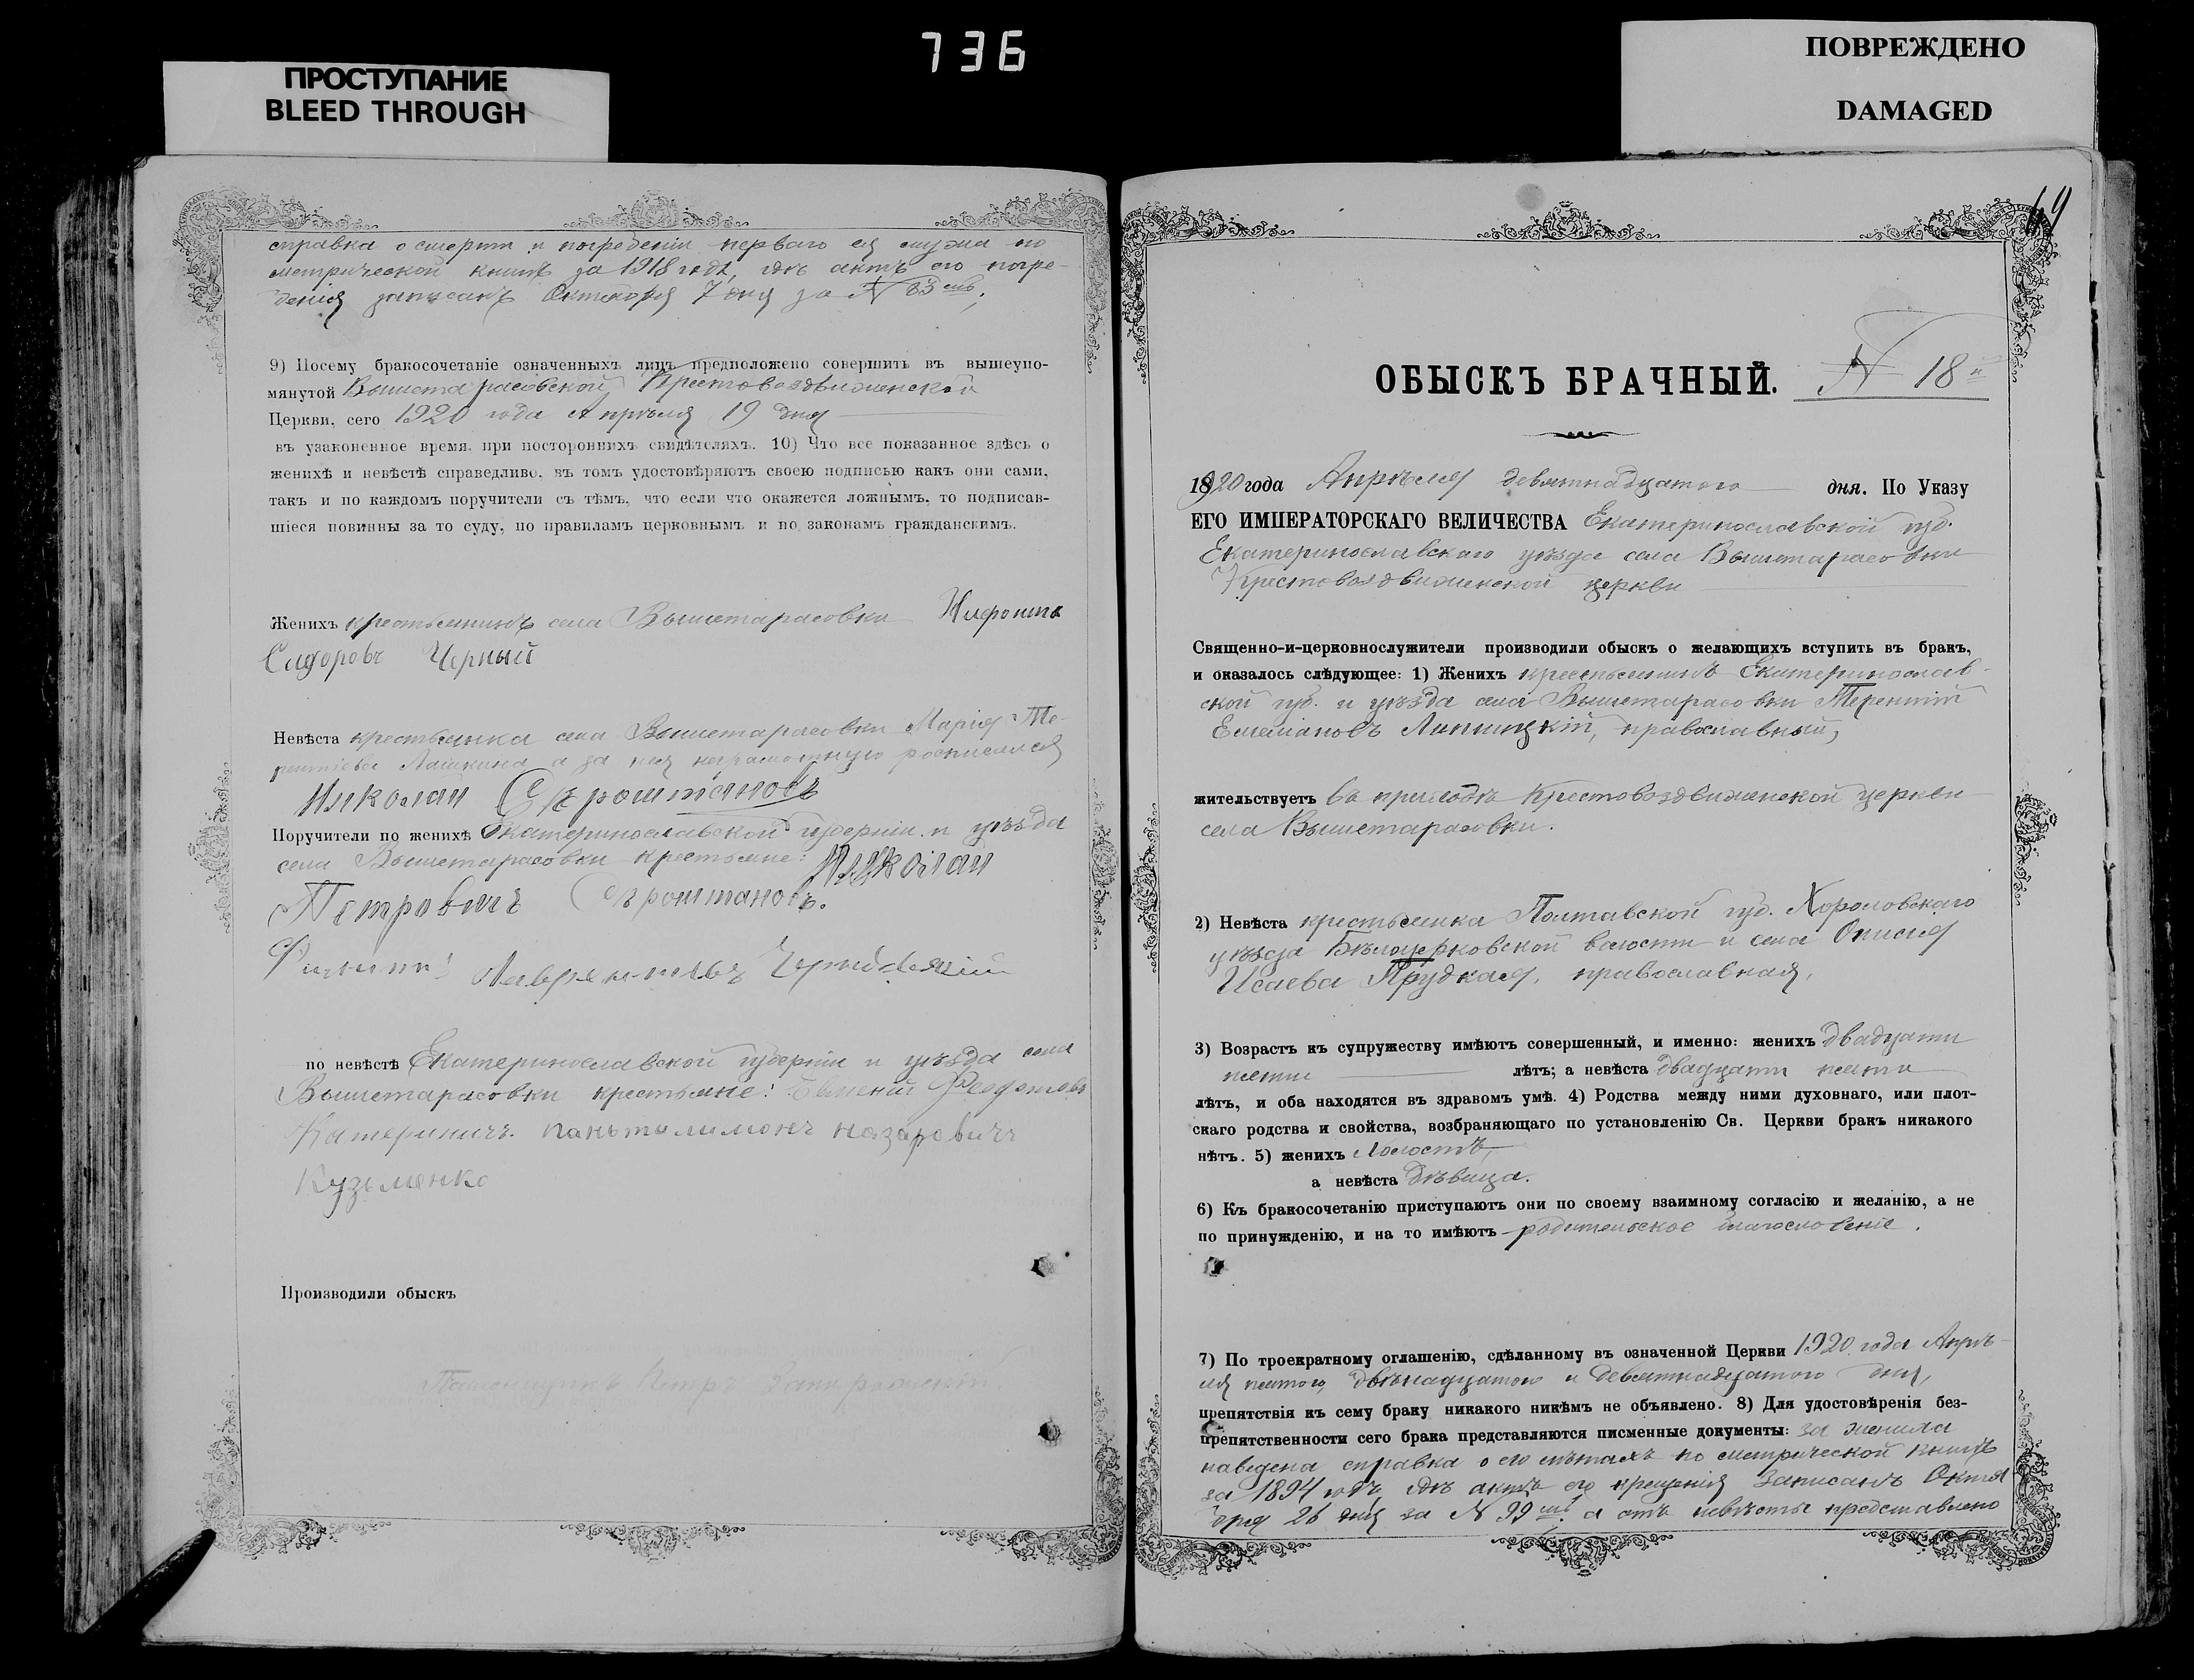 736
ПРОСТУПАНИЕ
BLEED THROUGH
ПОВРЕЖДЕНО
DAMAGED
справка о смерти и погребенiи перваго ея мужа по
метрической книгѣ за 1918 годъ, гдѣ актъ его погре-
бенiя записанъ Октября 7 дня за № 83
9) Посему бракосочетаніе означенныхъ лицъ предположено совершить въ вышеупо-
мянутой Вышетарасовской Крестовоздвиженской
Церкви, сего 1920 года Апрѣля 19 дня
въ узаконенное время, при постороннихъ свидѣтеляхъ. 10) Что все показанное здѣсь о
женихѣ и невѣстѣ справедливо, въ томъ удостовѣряютъ своею подписью какъ они сами,
такъ и по каждомъ поручители съ тѣмъ, что если что окажется ложнымъ, то подписав-
шіеся повинны за то суду, по правиламъ церковнымъ и по законамъ гражданскимъ.
Женихъ крестьянинъ села Вышетарасовки Нифонтъ
Сидоровъ Черный
Невѣста крестьянка села Вышетарасовки Марія Те-
рентіева а за нея неграмотную росписался
Николай Сѣроштановъ
Поручители по женихѣ Екатеринославской губерніи и уѣзда
села Вышетарасовки крестьяне: Николай
Петровичъ Сѣроштановъ.
по невѣстѣ Екатеринославской губерніи и уѣзда села
Вышетарасовки крестьяне: Феодотовъ
Катериничъ. Паньтилимонъ Назаровичъ
Кузьменко
Производили обыскъ
69
ОБЫСКЪ БРАЧНЫЙ. № 18й
1920 года Апрѣля девятнадцатого дня. По Указу
ЕГО ИМПЕРАТОРСКАГО ВЕЛИЧЕСТВА Екатеринославской губ.
Екатеринославскаго уѣзда села Вышетарасовки
Крестовоздвиженской церкви
Священно-и-церковнослужители производили обыскъ о желающихъ вступить въ бракъ,
и оказалось слѣдующее: 1) Женихъ крестьянинъ Екатеринослав-
ской губ. и уѣзда села Вышетарасовки Терентій
Емеліановъ Липницкій, православный,
жительствуетъ въ приходѣ Крестовоздвиженской церкви
села Вышетарасовки.
2) Невѣста крестьянка Полтавской губ. Хорольскаго
уѣзда Бѣлоцерковской волости и села Онисія
Исаева Прудкая, православная,
3) Возрастъ къ супружеству имѣютъ совершенный, и именно: женихъ двадцати
пяти лѣтъ; а невѣста двадцати пяти
лѣтъ, и оба находятся въ здравомъ умѣ. 4) Родства между ними духовнаго, или плот-
скаго родства и свойства, возбраняющаго по установленію Св. Церкви бракъ никакого
нѣтъ. 5) женихъ холостъ,
а невѣста дѣвица.
6) Къ бракосочетанію приступаютъ они по своему взаимному согласію и желанію, а не
по принужденію, и на то имѣютъ родительское благословеніе.
7) По троекратному оглашенію, сдѣланному въ означенной Церкви 1920 года Апрѣ-
ля пятого, двѣнадцатого и девятнадцатого дня,
препятствія къ сему браку никакого никѣмъ не объявлено. 8) Для удостовѣренія без-
препятственности сего брака представляются писменные документы: за жениха
наведена справка о его лѣтахъ по метрической книгѣ
за 1894 годъ гдѣ актъ его крещенія записанъ Октя
бря 26 дня за № 99 а отъ невѣсты представлено